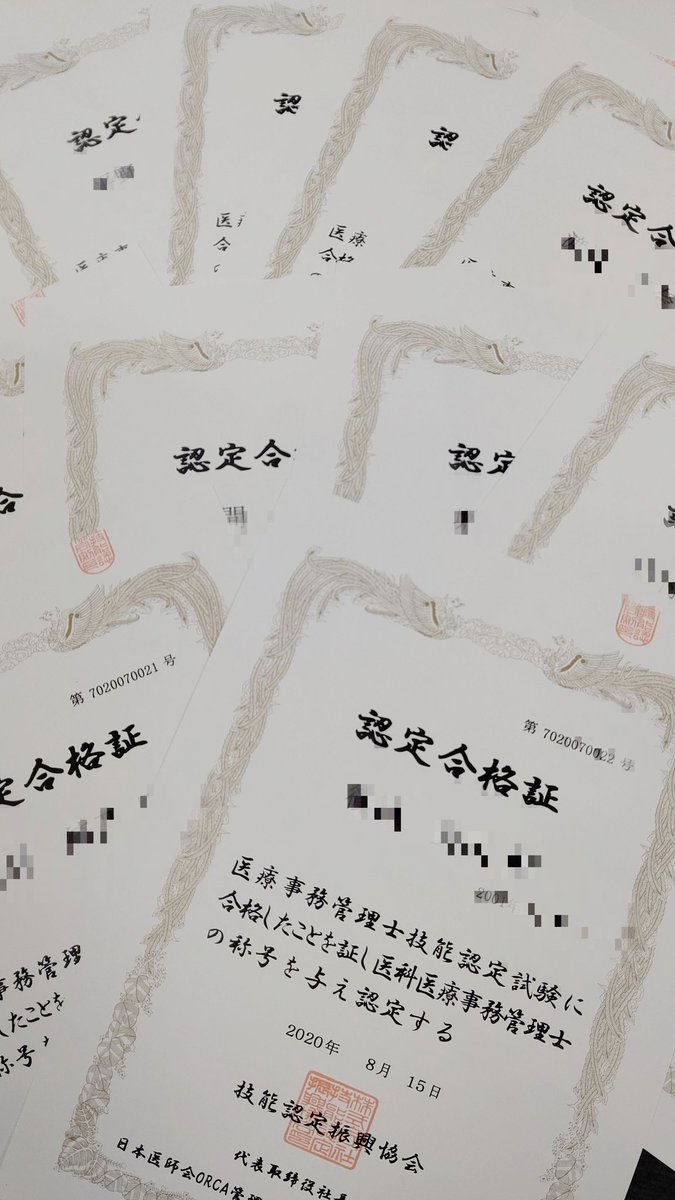 認定
認
認
認定合
医療
合
の
医療
合格
の
認定合
認定
合
第 7020070021 号
定合格証
事務管理
したことを
称号
第 7020070022 号
認定合格証
2001年
医療事務管理士技能認定試験に
合格したことを証し医科医療事務管理士
の称号を与え認定する
2020年 8月 15日
技能認定振興協会
代表取締役社長
日本医師会ORCA管理